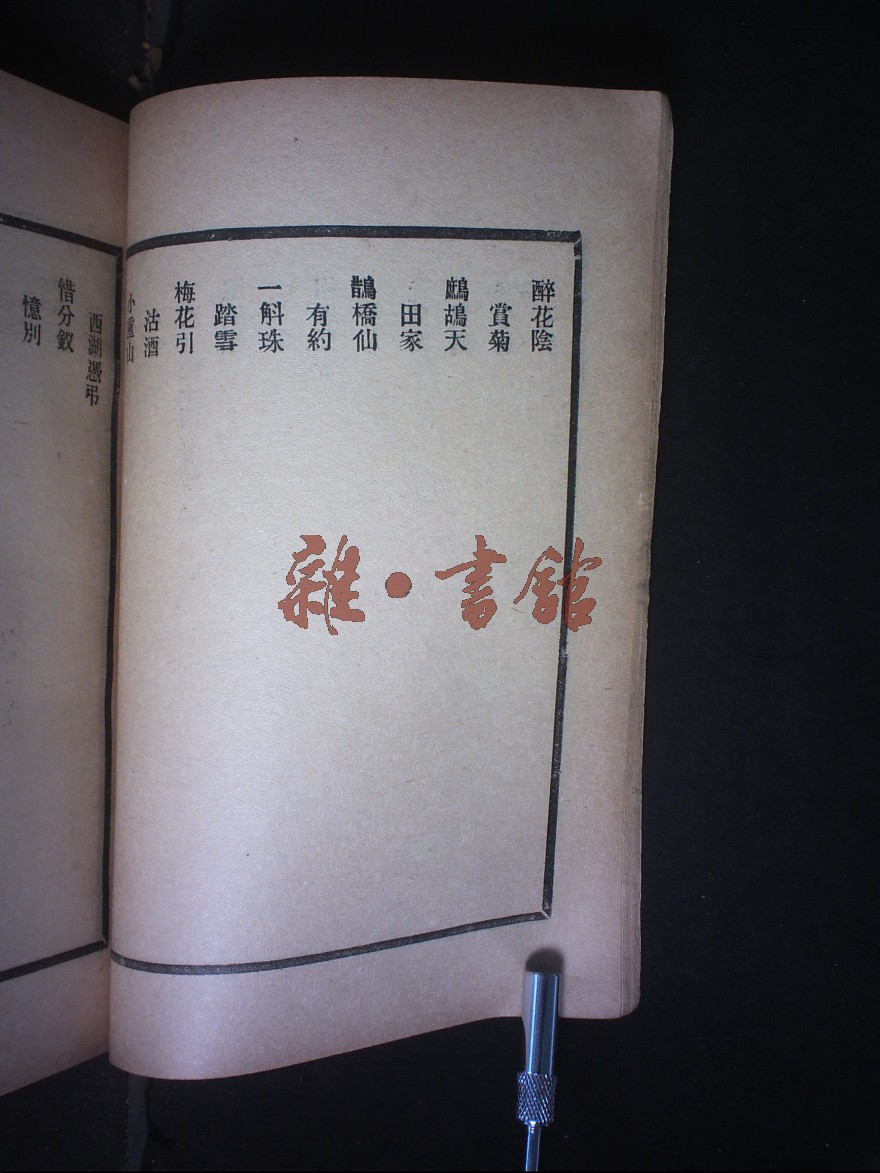 醉花陰
賞菊
鷓鴣天
田家
鵲橋仙
有約
一斛珠
踏雪
梅花引
沽酒
小重山
西湖憑弔
惜分釵
憶別
雜•書館